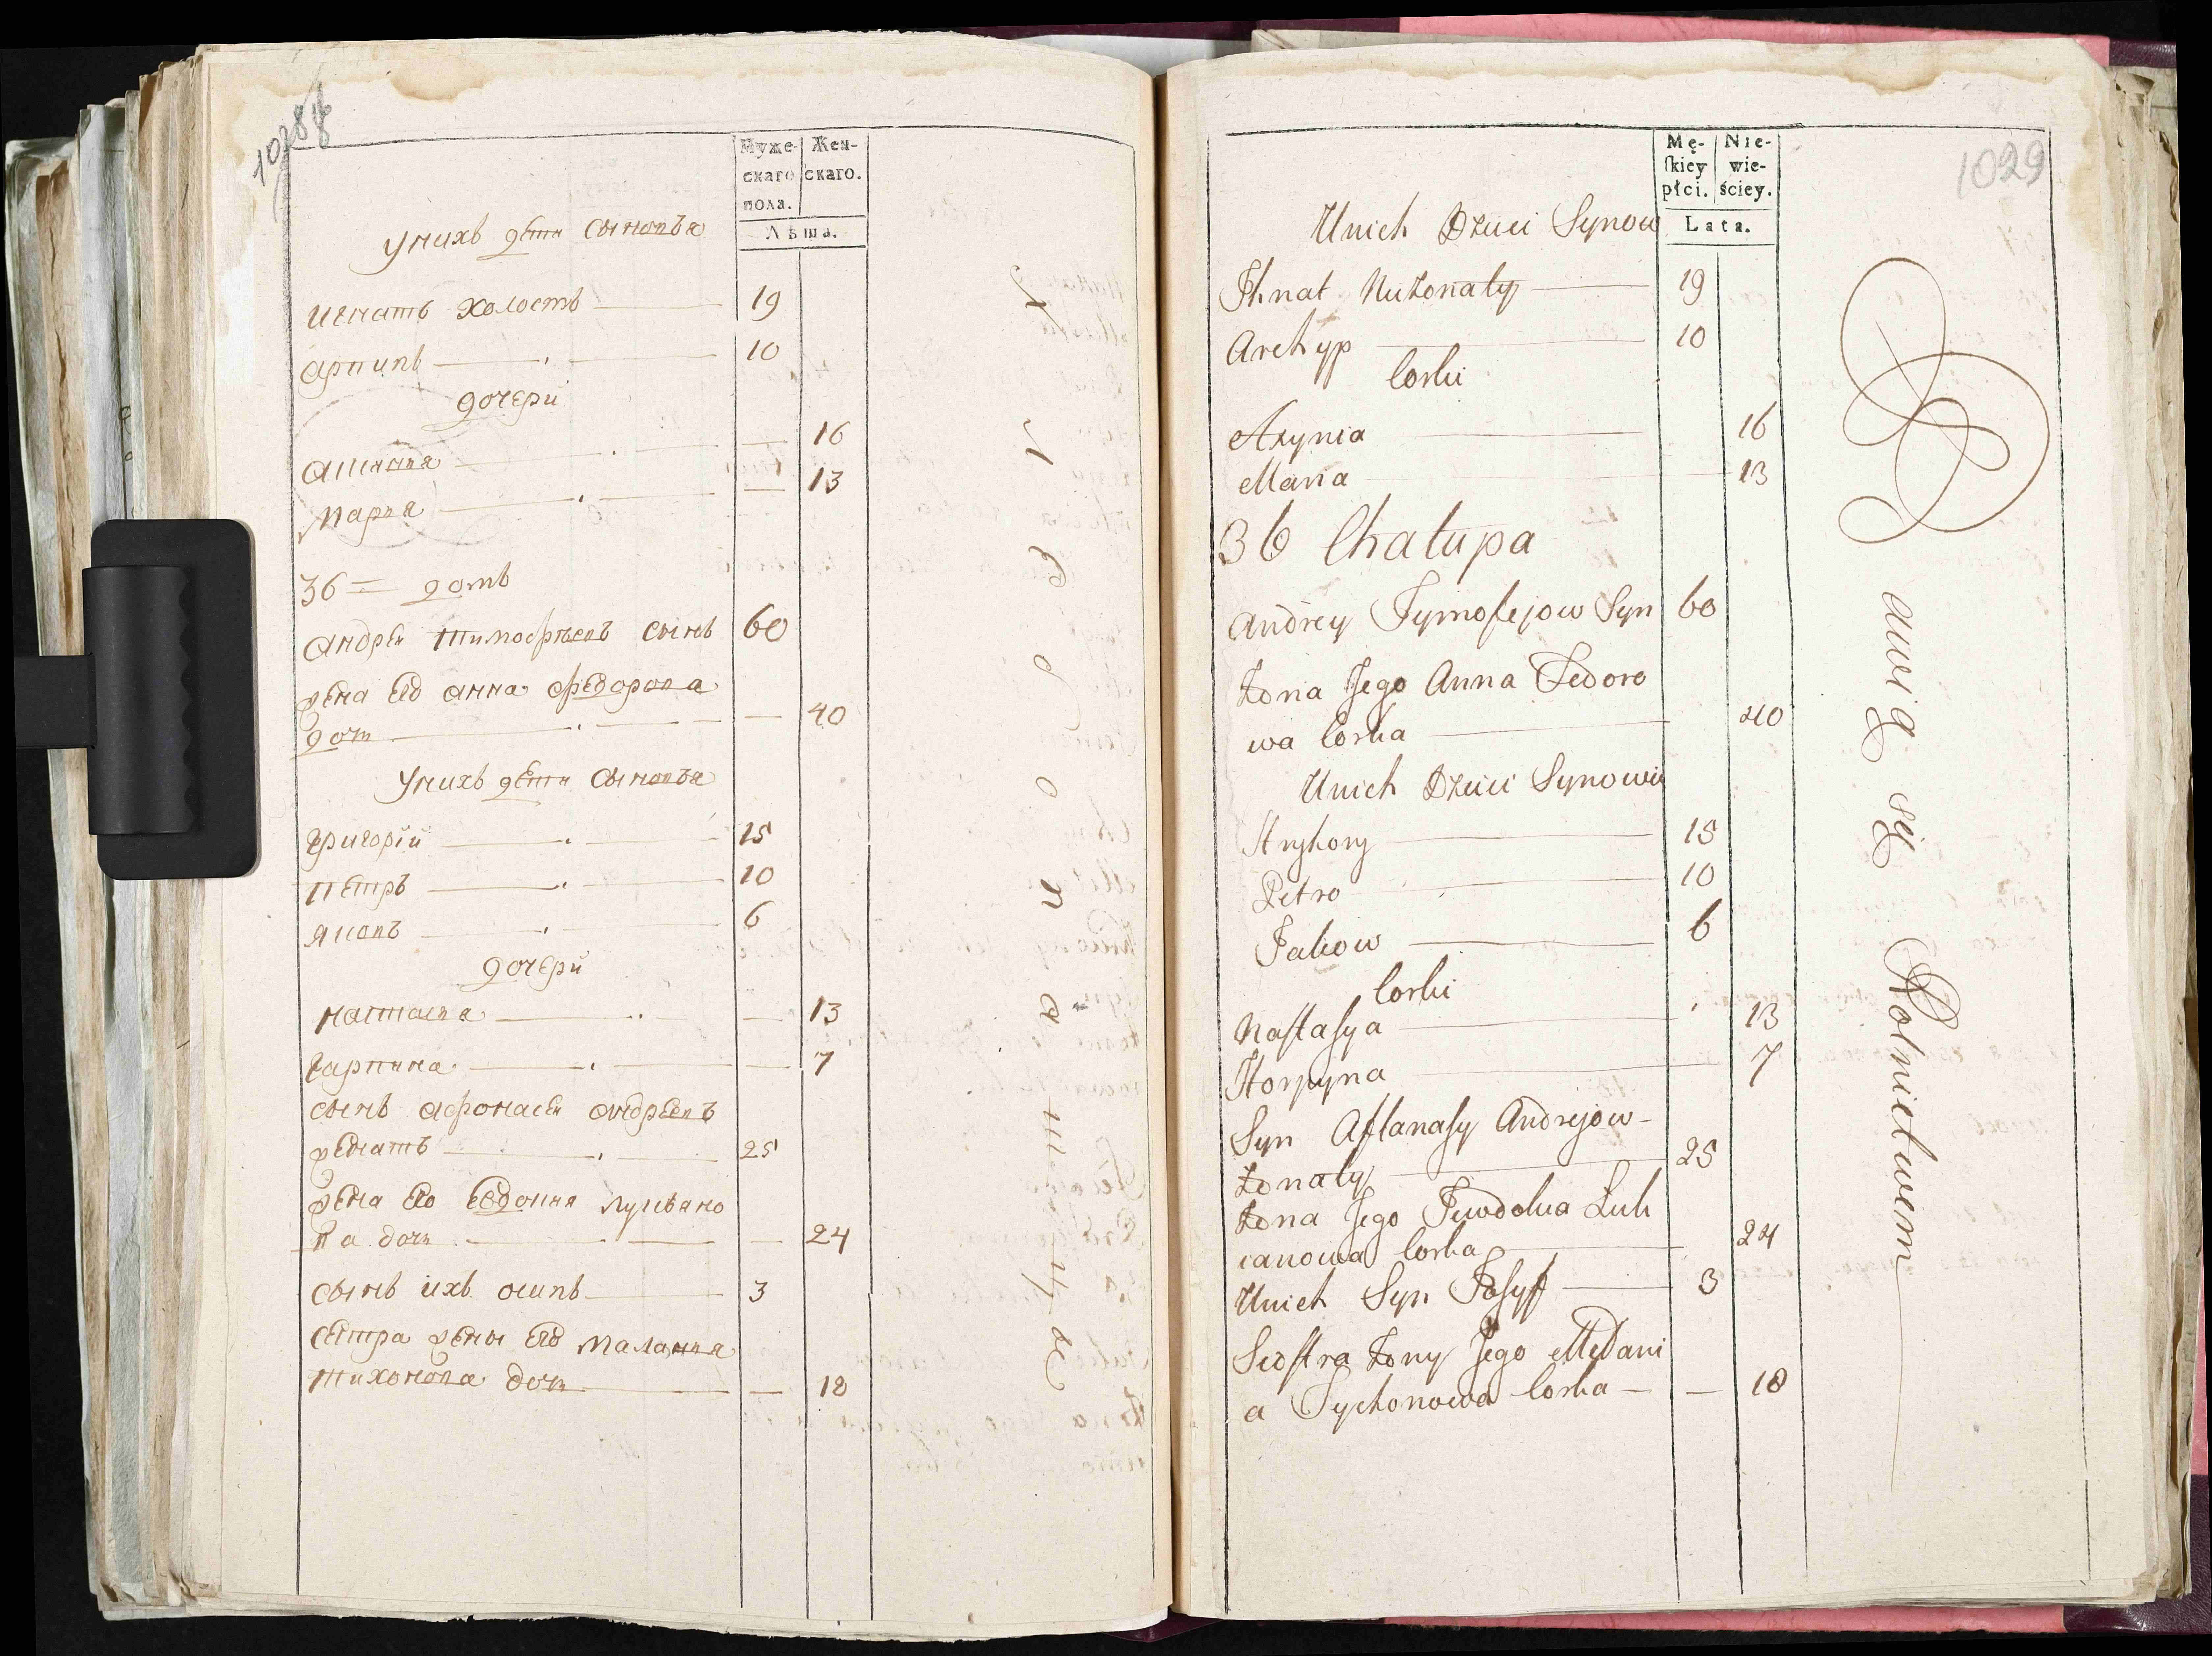 1028
Муже-
скаго
пола.
Жен-
скаго.
Лѣта.
Унихъ дети Сыновья
игнатъ холостъ 19
архипъ 10
дочери
16
марья 13
36 = домъ
андреи тимофѣевъ сынъ 60
жена его анна федорова
дочь 40
Унихъ дети Сыновья
григорiй 15
петръ 10
яковъ 6
дочери
настасья 13
гарпина 7
сынъ афонасеи андреевъ
женатъ 25
жена его евдокия лукьяно
ва дочь 24
сынъ ихъ осипъ 3
сестра жены его маланья
тихонова дочь 18
1029
Mę-
skiey
płci.
Nie-
wie-
ściey.
Lata.
Unich Dzieci Synow
Ihnat Nieżonaty 19
Archyp 10
Corki
16
Maria 13
36 Chałupa
Andrey Tymofejow Syn 60
Żona Jego Anna Fedoro
wa Corka 40
Unich Dzieci Synowie
Hryhory 15
Petro 10
Jakow 6
Corki
Nastasya 13
Horpyna 7
Syn Aftanasy Andrejow-
Żonaty 25
Żona Jego Jewdokia Łuk
ianowa Corka 24
Unich Syn Josyf 3
Siostra Żony Jego Mełani
a Tychonowa Corka — — 18
awią się Rolnictwem